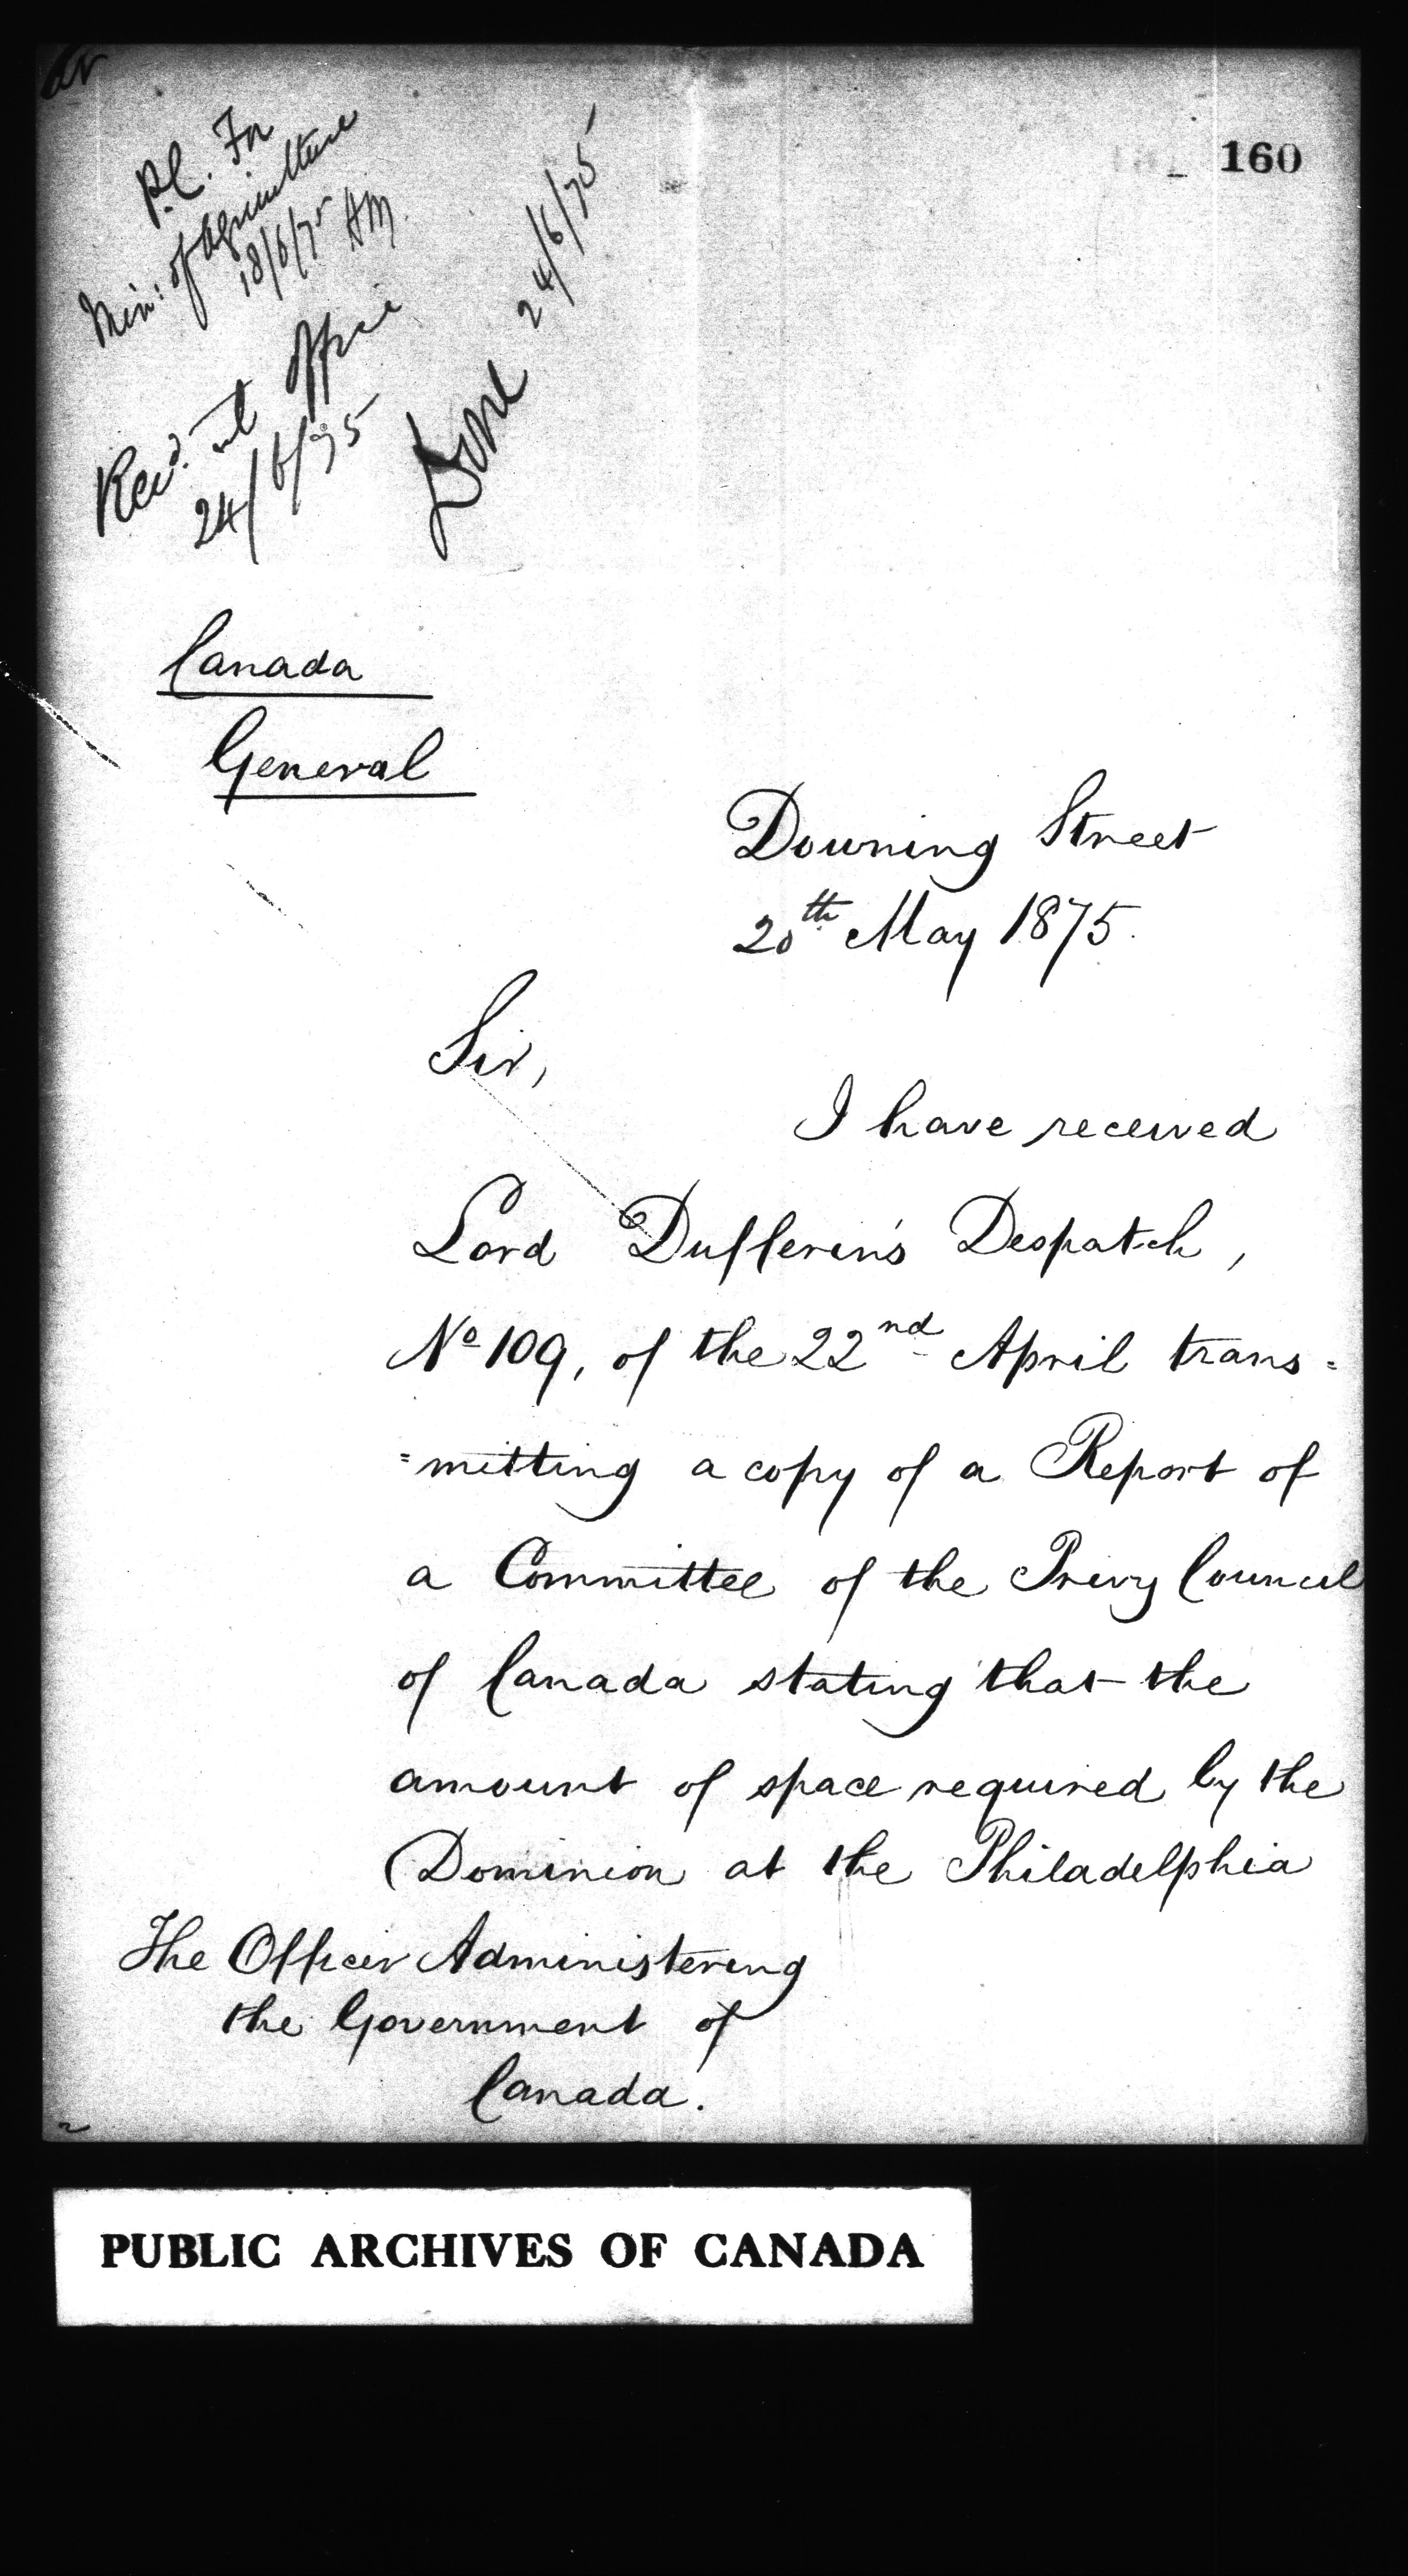 160
P.C. For
Min: of Agriculture
18/6/75 HM.
Recd. at office
24/6/75
Done 24/6/75
Canada
General
Downing Street
20th May 1875.
Sir,
I have received
Lord Dufferin's Despatch,
No 109, of the 22nd April trans=
=mitting a copy of a Report of
a Committee of the Privy Council
of Canada stating that the
amount of space required by the
Dominion at the Philadelphia
The Officer Administering
the Government of
Canada.
PUBLIC ARCHIVES OF CANADA